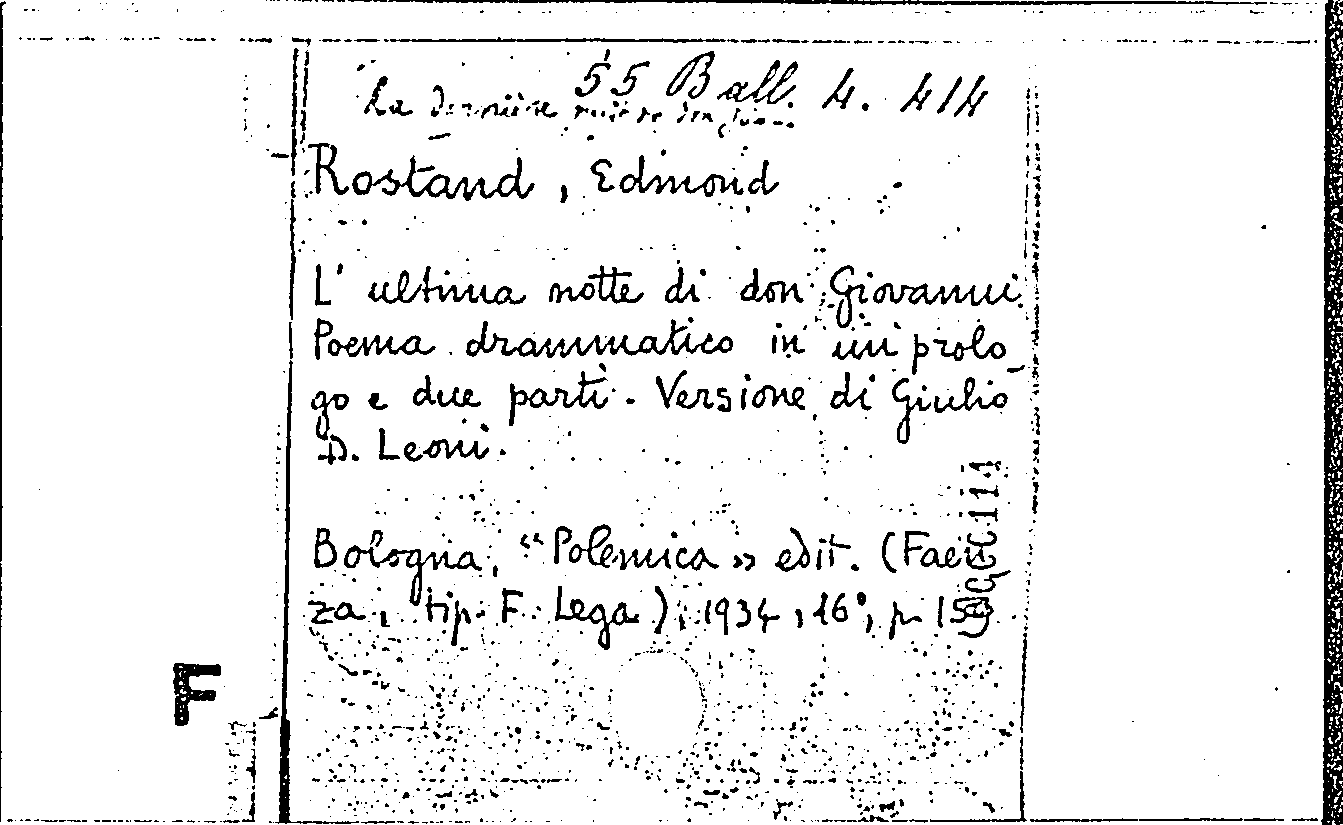 55 Ball. 4. 414
La dernière nuit de don Juan
Rostand, Edmond
L' ultima notte di don Giovanni
Poema drammatico in un prolo_
go e due parti. Versione di Giulio
D. Leoni.
Bologna, "Polemica" edit. (Faen
za, tip. F. Lega), 1934, 16°, p. 159
F